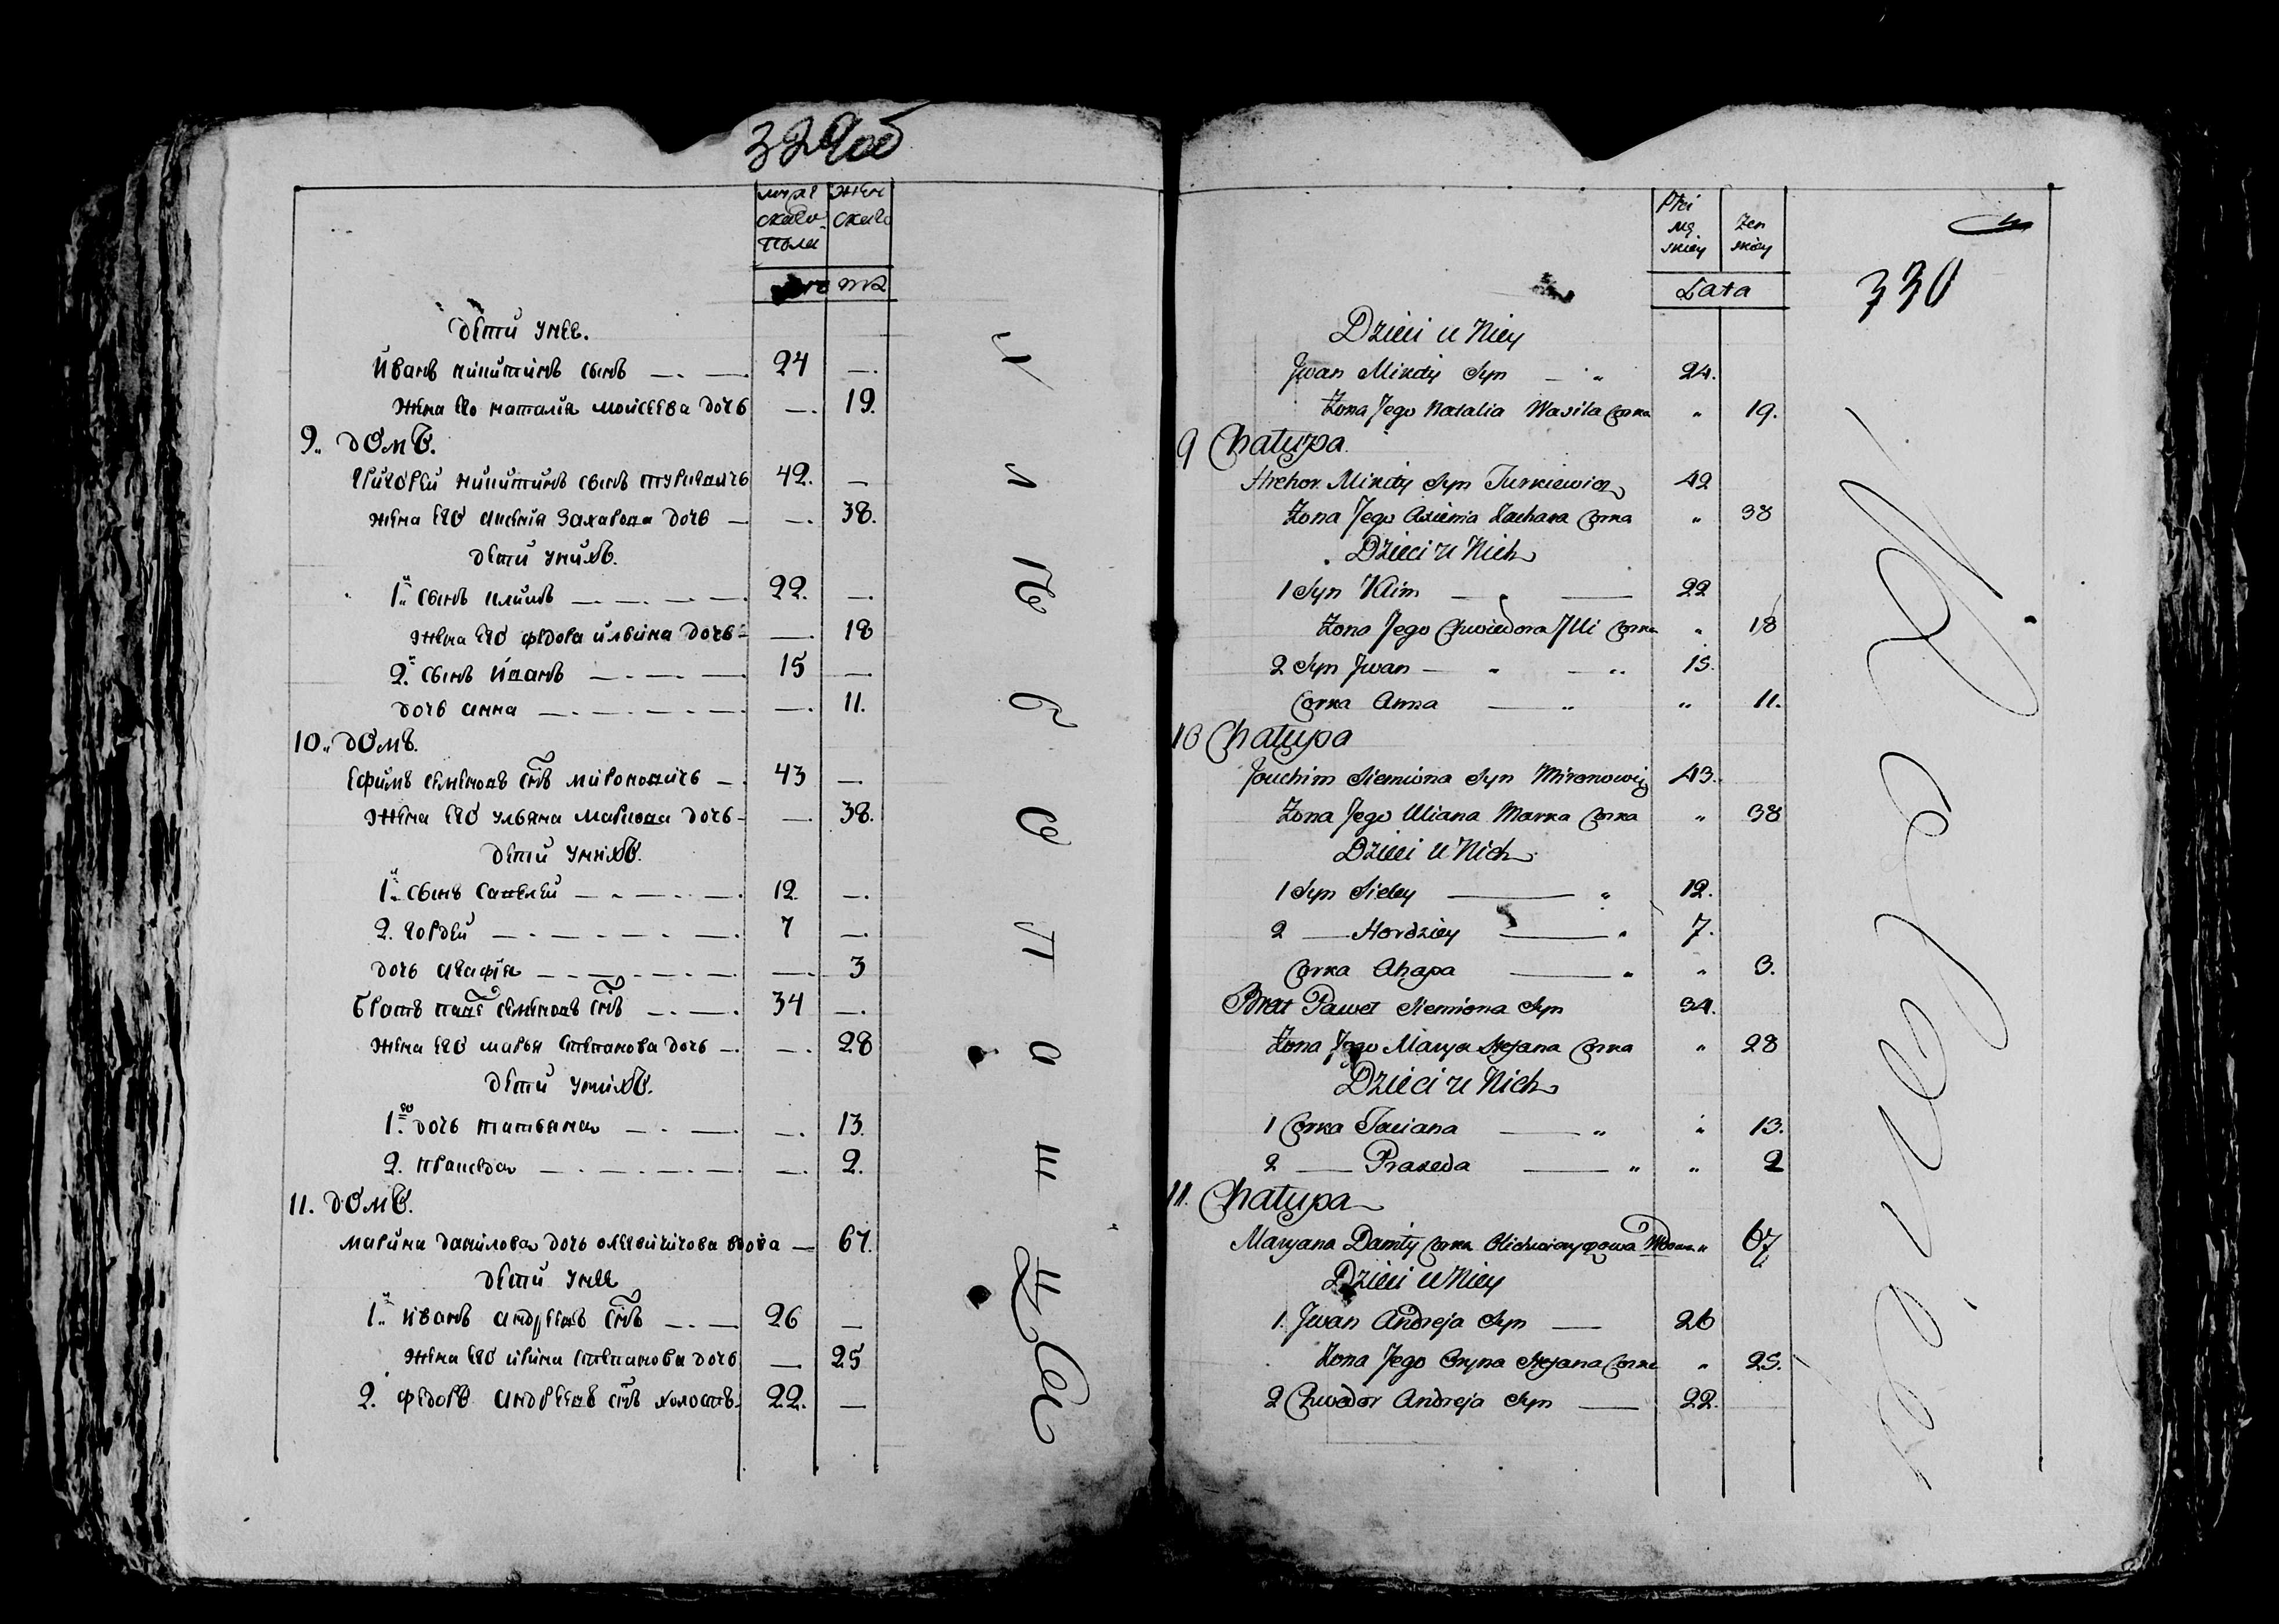 329об
муже
скаго
полу
жен
скаго
лета
дети унее.
Иванъ никитинъ сынъ — . — . 24 — .
жена его наталiя моисеева дочь — . 19.
9. домъ.
Григорей никитинъ сынъ туркевичъ 42. —
жена его аксенiя захарова дочь — — . 38.
дети унихъ.
1й сынъ климъ — . — . — . — . 22. — .
жена его федора ильина дочь — — . 18
2й сынъ иванъ — . — . — . 15 — .
дочь анна — . — . — . — . — . 11.
10. домъ.
Ефимъ семеновъ снъ мироновичъ — . 43 — .
жена его ульяна маркова дочь — — . 38.
дети унихъ.
1й сынъ савелей — . — . — . 12. — .
2. гордей — . — . — . — . 7 — .
дочь агафiя — . — . — . — . — . 3
братъ павe семеновъ снъ — . — . 34 — .
жена его марья степанова дочь — . — . 28
дети унихъ.
1я дочь татьяна — . — . — . 13.
2. пракседа — . — . — . — . — . 2.
11. домъ.
марина данилова дочь олехвировичова вдова — 67.
дети унее
1й иванъ андреевъ снъ — . — 26 —
жена его ирина степанова дочь — . 25
2. федоръ андреевъ снъ холостъ. 22. —
330
Płci
mę
skiey
żen
skiey
Lata
Dzieci u Niey
Jwan Mikity Syn — " 24.
Żona Jego Natalia Wasila Corka " 19.
9 Chałupa.
Hrehor Mikity Syn Turkiewicz 42
Żona Jego Axienia Zachara Corka " 38
Dzieci u Nich
1 Syn Klim — " — 22
Żona Jego Chwiedora Jlli Corka " 18
2 Syn Jwan — " — " 15.
Corka Anna — " " 11.
10 Chałupa
Jouchim Siemiona Syn Mironowicz 43.
Żona Jego Uliana Marka Corka " 38
Dzieci u Nich
1 Syn Sieley — " 12.
2 — Hordziey — " 7.
Corka Ahapa — " " 3.
Brat Paweł Siemiona Syn 34.
Żona Jego Marya Stepana Corka " 28
Dzieci u Nich
1 Corka Taciana — " " 13.
2 — Praxeda — " " 2
11. Chałupa
Maryana Daniły Corka Wdowa " 67
Dzieci u Niey
1. Jwan Andreja Syn — 26
Żona Jego Oryna Stepana Corka " 25.
2 Chwedor Andreja Syn — 22.